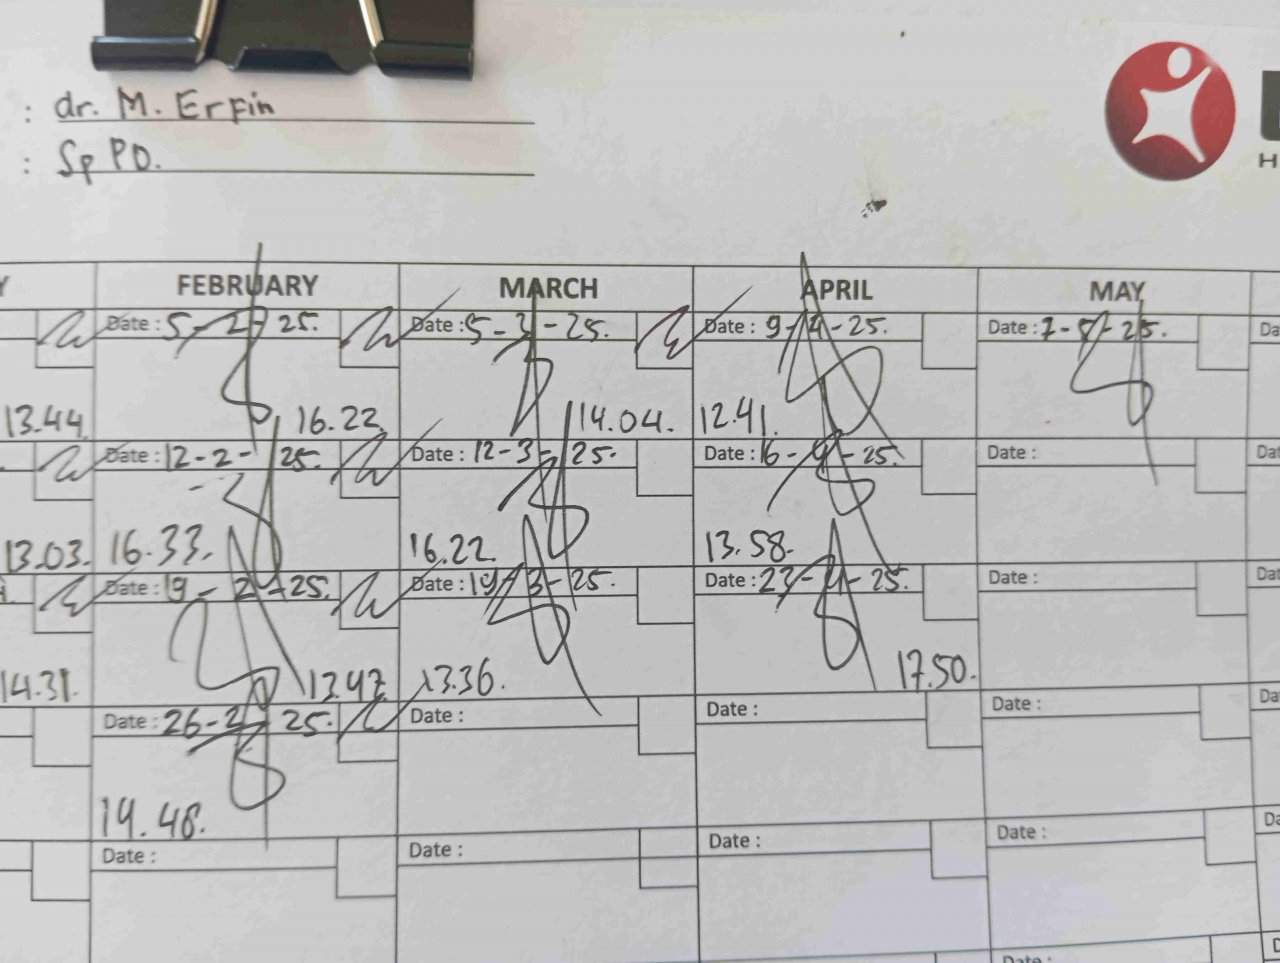 : dr. M. Erfin
: Sp PD.
H
Y FEBRUARY MARCH APRIL MAY
Date : 5-2-25. Date : 5-3-25. Date : 9-4-25. Date : 7-5-25. Da
13.44 16.22 14.04. 12.41.
Date : 12-2-25. Date : 12-3-25. Date : 16-4-25. Date : Dat
13.03. 16.33. 16.22. 13.58.
Date : 19-2-25. Date : 19-3-25. Date : 23-4-25. Date : Dat
14.31. 13.47 13.36. 17.50.
Date : 26-2-25. Date : Date : Date : Da
14.48.
Date : Date : Date : Date : Da
Date :